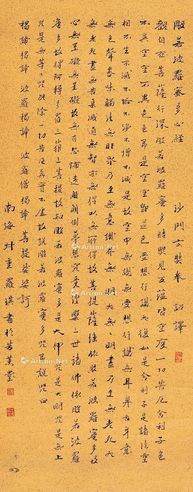 般若波羅蜜多心經 沙門玄奘奉詔譯
觀自在菩薩行深般若波羅蜜多時照見五蘊皆空度一切苦厄舍利子色
不異空空不異色色即是空空即是色受想行識亦復如是舍利子是諸法空
相不生不滅不垢不淨不增不減是故空中無色無受想行識無眼耳鼻舌身意
無色聲香味觸法無眼界乃至無意識界無無明亦無無明盡乃至無老死亦
無老死盡無苦集滅道無智亦無得以無所得故菩提薩埵依般若波羅蜜多故
心無罣礙無罣礙故無有恐怖遠離顛倒夢想究竟涅槃三世諸佛依般若波羅
蜜多故得阿耨多羅三藐三菩提故知般若波羅蜜多是大神咒是大明咒是無上
咒是無等等咒能除一切苦真實不虛故說般若波羅蜜多咒即說咒曰
揭諦揭諦 波羅揭諦 波羅僧揭諦 菩提薩婆訶
南海村童羅 書於 堂